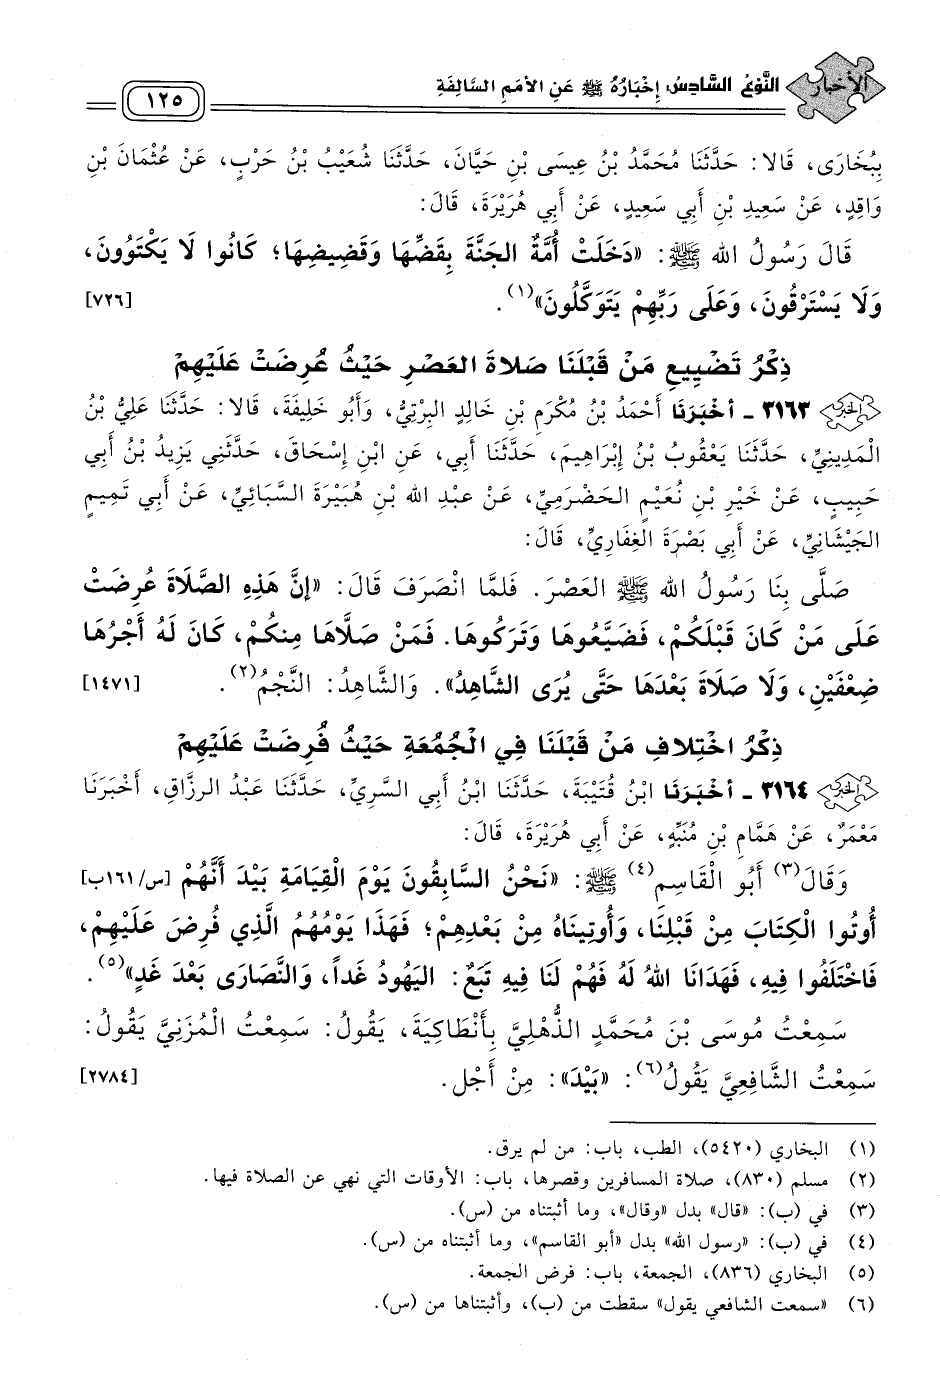 الأخبار
النَّوْعُ السَّادِسُ: إِخْبَارُهُ ﷺ عَنِ الأُمَمِ السَّالِفَةِ
١٢٥
بِبُخَارَى، قَالا: حَدَّثَنَا مُحَمَّدُ بْنُ عِيسَى بْنِ حَيَّانَ، حَدَّثَنَا شُعَيْبُ بْنُ حَرْبٍ، عَنْ عُثْمَانَ بْنِ
وَاقِدٍ، عَنْ سَعِيدِ بْنِ أَبِي سَعِيدٍ، عَنْ أَبِي هُرَيْرَةَ، قَالَ:
قَالَ رَسُولُ الله ﷺ: «دَخَلَتْ أُمَّةٌ الجَنَّةَ بِقَضِّهَا وَقَضِيضِهَا؛ كَانُوا لَا يَكْتَوُونَ،
وَلَا يَسْتَرْقُونَ، وَعَلَى رَبِّهِمْ يَتَوَكَّلُونَ»(١). [٧٢٦]
ذِكْرُ تَضْيِيعِ مَنْ قَبْلَنَا صَلاةَ العَصْرِ حَيْثُ عُرِضَتْ عَلَيْهِمْ
٣١٦٣ - أخْبَرَنَا أَحْمَدُ بْنُ مُكْرَمِ بْنِ خَالِدٍ البِرْتِيُّ، وَأَبُو خَلِيفَةَ، قَالا: حَدَّثَنَا عَلِيُّ بْنُ
الْمَدِينِيِّ، حَدَّثَنَا يَعْقُوبُ بْنُ إِبْرَاهِيمَ، حَدَّثَنَا أَبِي، عَنِ ابْنِ إِسْحَاقَ، حَدَّثَنِي يَزِيدُ بْنُ أَبِي
حَبِيبٍ، عَنْ خَيْرِ بْنِ نُعَيْمٍ الحَضْرَمِيِّ، عَنْ عبْدِ الله بْنِ هُبَيْرَةَ السَّبَائِيِّ، عَنْ أَبِي تَمِيمٍ
الجَيْشَانِيِّ، عَنْ أَبِي بَصْرَةَ الغِفَارِيِّ، قَالَ:
صَلَّى بِنَا رَسُولُ الله ﷺ العَصْرَ. فَلَمَّا انْصَرَفَ قَالَ: «إِنَّ هَذِهِ الصَّلَاةَ عُرِضَتْ
عَلَى مَنْ كَانَ قَبْلَكُمْ، فَضَيَّعُوهَا وَتَرَكُوهَا. فَمَنْ صَلَّاهَا مِنكُمْ، كَانَ لَهُ أَجْرُهَا
ضِعْفَيْنِ، وَلَا صَلَاةَ بَعْدَهَا حَتَّى يُرَى الشَّاهِدُ». وَالشَّاهِدُ: النَّجْمُ(٢). [١٤٧١]
ذِكْرُ اخْتِلافِ مَنْ قَبْلَنَا فِي الْجُمُعَةِ حَيْثُ فُرِضَتْ عَلَيْهِمْ
٣١٦٤ - أخْبَرَنَا ابْنُ قُتَيْبَةَ، حَدَّثَنَا ابْنُ أَبِي السَّرِيِّ، حَدَّثَنَا عَبْدُ الرزَّاقِ، أَخْبَرَنَا
مَعْمَرٌ، عَنْ هَمَّامِ بْنِ مُنَبِّهٍ، عَنْ أَبِي هُرَيْرَةَ، قَالَ:
وَقَالَ(٣) أَبُو الْقَاسِمِ(٤) ﷺ: «نَحْنُ السَّابِقُونَ يَوْمَ الْقِيَامَةِ بَيْدَ أَنَّهُمْ [س/١٦١ب]
أُوتُوا الْكِتَابَ مِنْ قَبْلِنَا، وَأُوتِينَاهُ مِنْ بَعْدِهِمْ؛ فَهَذَا يَوْمُهُمُ الَّذِي فُرِضَ عَلَيْهِمْ،
فَاخْتَلَفُوا فِيهِ، فَهَدَانَا اللهُ لَهُ فَهُمْ لَنَا فِيهِ تَبَعٌ: اليَهُودُ غَداً، وَالنَّصَارَى بَعْدَ غَدٍ»(٥).
سَمِعْتُ مُوسَى بْنَ مُحَمَّدٍ الذُّهْلِيَّ بِأَنْطَاكِيَةَ، يَقُولُ: سَمِعْتُ الْمُزَنِيَّ يَقُولُ:
سَمِعْتُ الشَّافِعِيَّ يَقُولُ(٦): «بَيْدَ»: مِنْ أَجْلِ. [٢٧٨٤]
(١) البخاري (٥٤٢٠)، الطب، باب: من لم يرق.
(٢) مسلم (٨٣٠)، صلاة المسافرين وقصرها، باب: الأوقات التي نهي عن الصلاة فيها.
(٣) في (ب): «قال» بدل «وقال»، وما أثبتناه من (س).
(٤) في (ب): «رسول الله» بدل «أبو القاسم»، وما أثبتناه من (س).
(٥) البخاري (٨٣٦)، الجمعة، باب: فرض الجمعة.
(٦) «سمعت الشافعي يقول» سقطت من (ب)، وأثبتناها من (س).